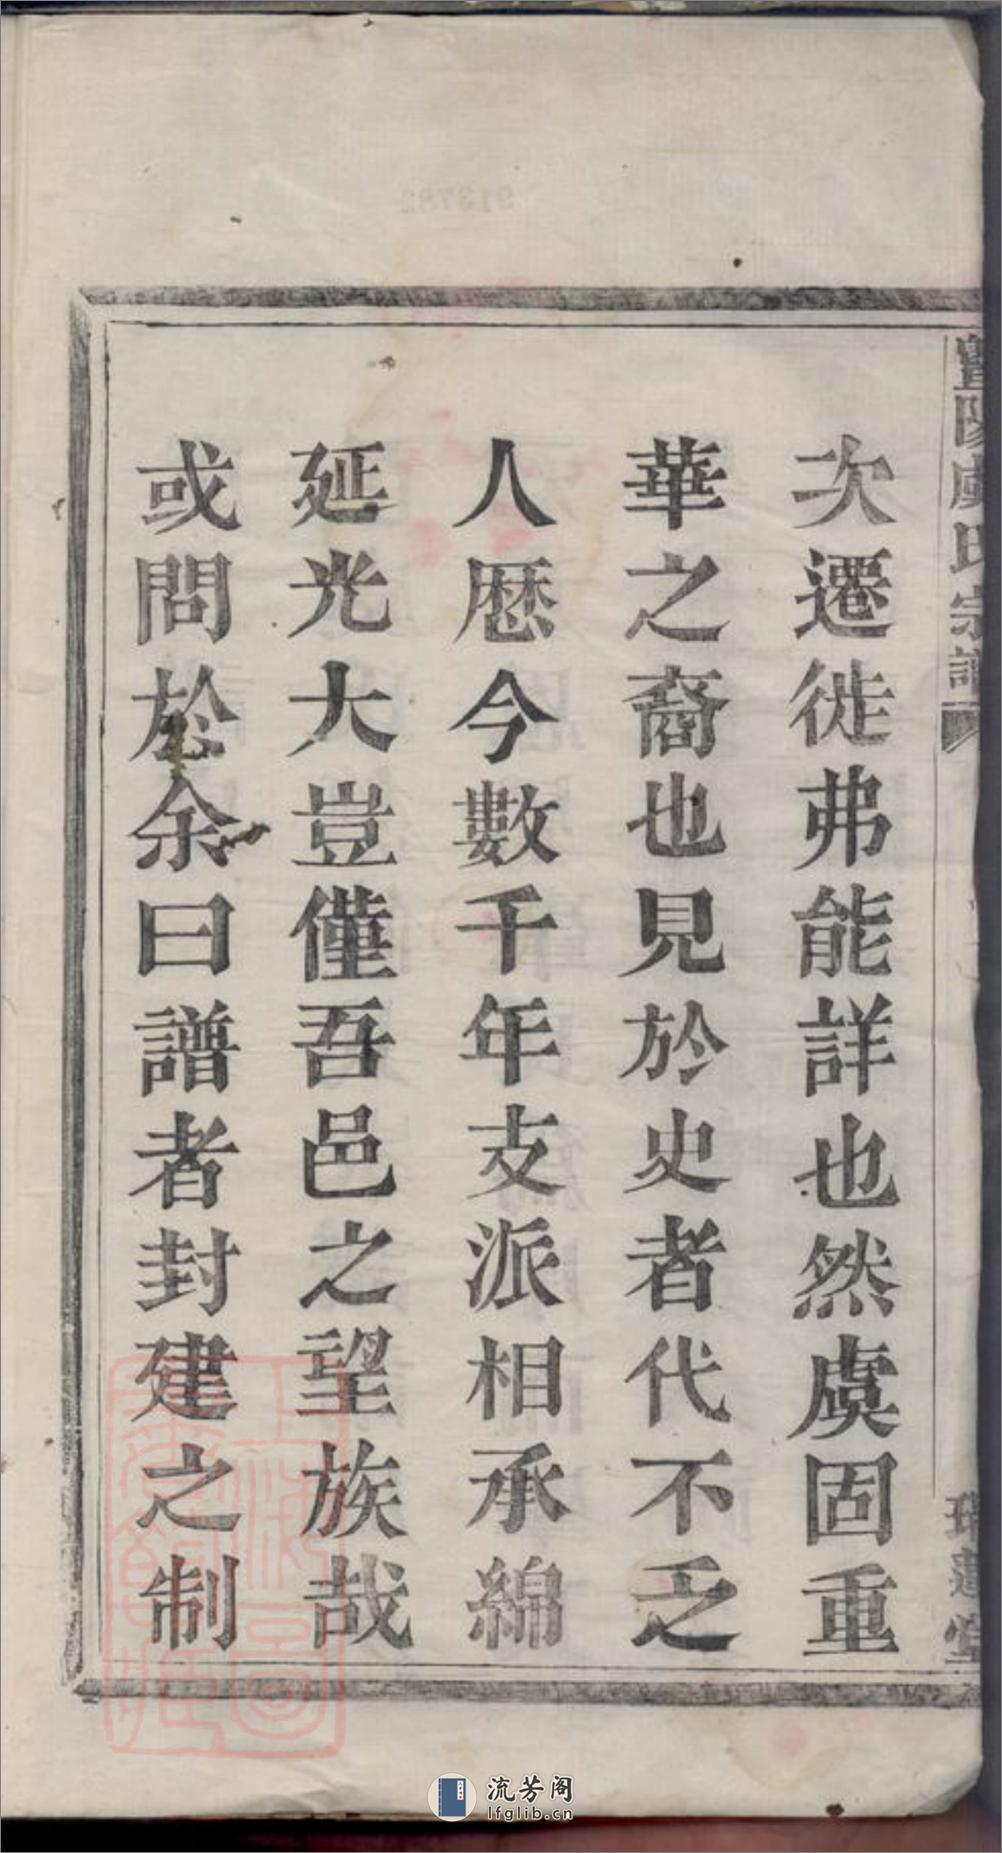 暨陽虞氏宗譜
次遷徙弗能詳也然虞固重
華之裔也見於史者代不乏
人歷今數千年支派相承綿
延光大豈僅吾邑之望族哉
或問於余曰譜者封建之制
913782
流芳阁
lfglib.cn